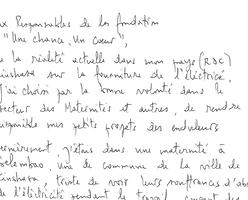 ux Responsables de la fondation
"Une chance, Un cœur",
la réalité actuelle dans mon pays (RDC)
inshasa sur la fourniture de l'électricité,
J'ai choisi par la bonne volonté dans le
ecteur des Maternités et autres, de rendre
mes petits projets des onduleurs
remièrement, j'étais dans une maternité à
elembao, une de commune de la ville de
inshasa, triste de voir leurs souffrances d'abs
de l'électricité pendant le travail